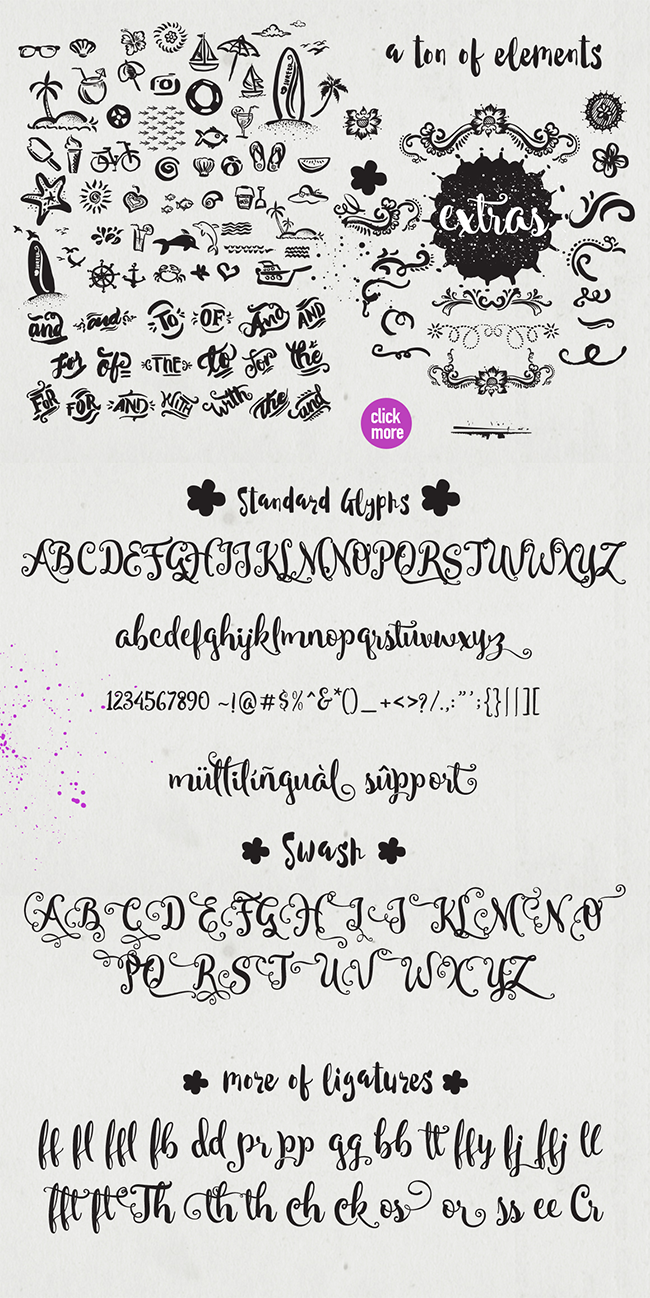 a ton of elements
extras
and and TO OF And AND
for of THE to for the
FOR FOR AND WITH with the and
click
more
Standard Glyphs
ABCDEFGHIJKLMNOPQRSTUVWXYZ
abcdefghijklmnopqrstuvwxyz
1234567890 ~!@#$%^&*()_+<>?/.,:"';{}||][
mültilíñguàl sûpport
Swash
ABCDEFGHIJKLMNO
PQRSTUVWXYZ
more of ligatures
ff fl ffl fb dd pr pp gg bb tt ffy fj ffj ll
fft ft Th th th ch ck os or ss ee Cr